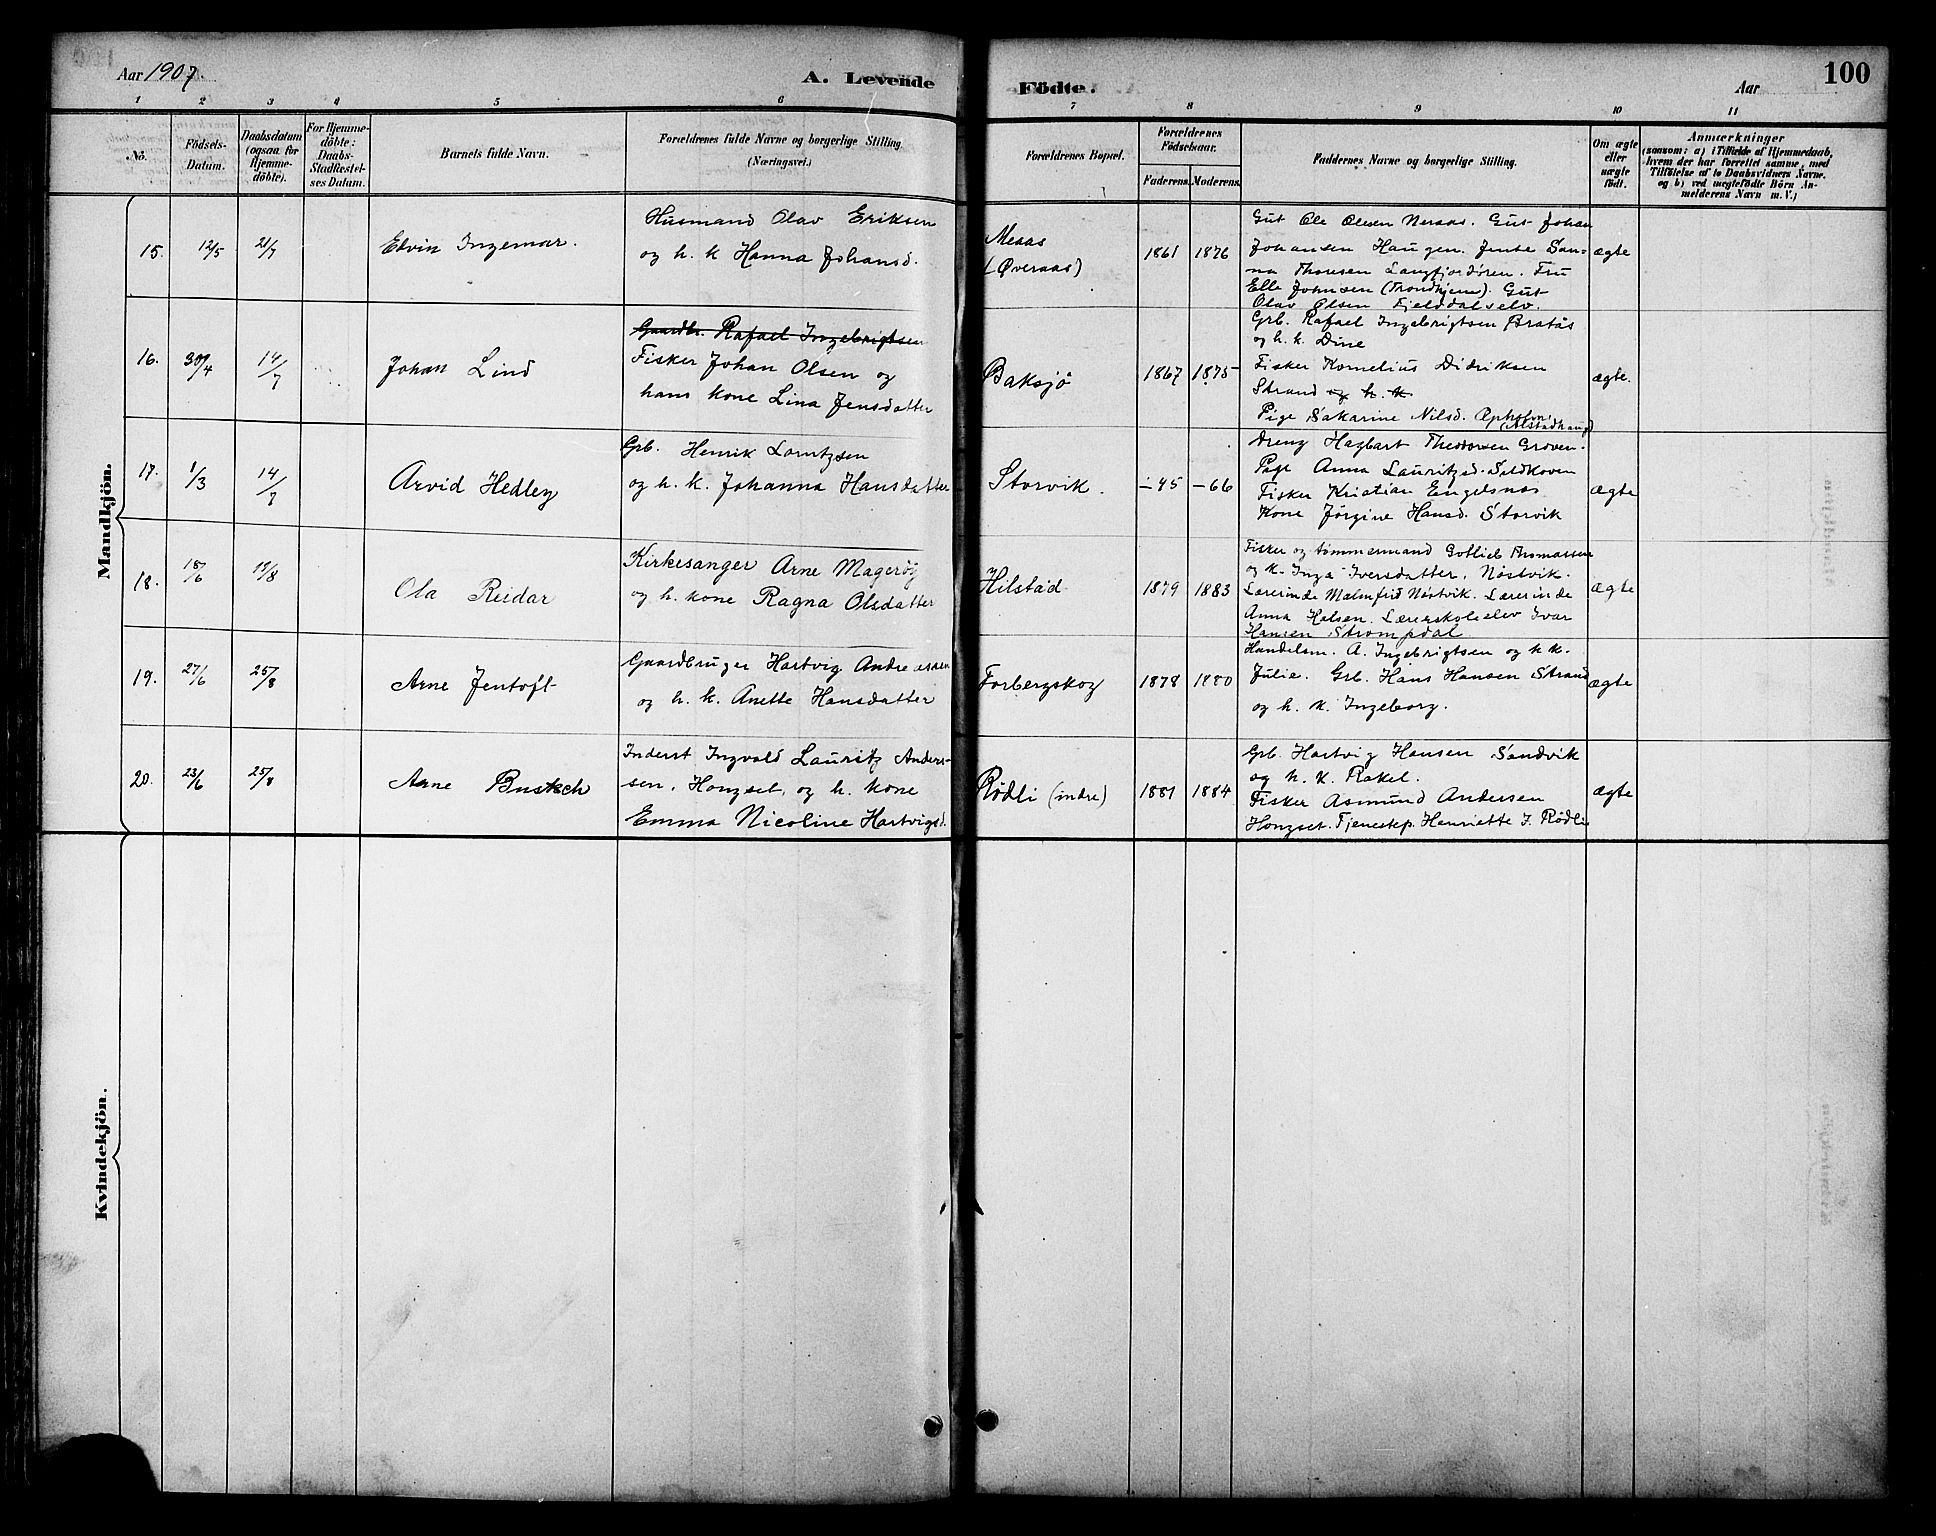 Aar 1907.
A. Levende
Födte.
Aar
100
1 2 3 4 5 6 7 8 9 10 11
No.
Födsels-
Datum.
Daabsdatum
(ogsaa for
Hjemme-
döbte).
For Hjemme-
döbte:
Daabs-
Stadfæstel-
ses Datum.
Barnets fulde Navn.
Forældrenes fulde Navne og borgerlige Stilling
(Næringsvei.)
Forældrenes Bopæl.
Forældrenes
Födselsaar.
Faderens. Moderens.
Faddernes Navne og borgerlige Stilling.
Om ægte
eller
uægte
födt.
Anmærkninger
(saasom: a) i Tilfælde af Hjemmedaab,
hvem der har forrettet samme, med
Tilföielse af to Daabsvidners Navne.
og b) ved uægtefödte Börn An-
melderens Navn m. V.)
Mandkjön.
15. 12/5 21/7
Edvin Ingemar.
Husmand Olav Eriksen
og h. k Hanna Johansd.
Meaas
(Øveraas)
1861 1876
Gut Ole Olesen Neraas. Gut Johan
Johansen Haugen. Jente San-
na Thoresen Langfjordøren. Fru
Elle Johnsen (Trondhjem). Gut
Olav Olsen Fjelddalselv.
ægte
16. 30/4 14/7
Johan Lind
Gaardbr. Rafael Ingebrigtsen
Fisker Johan Olsen og
hans kone Lina Jensdatter
Baksjö
1867 1875
Grb. Rafael Ingebrigtsen Bratås
og h. k. Dine
Fisker Kornelius Didriksen
Strand og h. k.
Pige Sakarine Nilsd.
(Alstadhaug)
ægte.
17. 1/3 14/7
Arvid Hedley
Grb. Henrik Lorntzsen
og h. k. Johanna Hansdatter
Storvik.
-45 -66
Dreng Hagbart Theodorsen Groven.
Pige Anna Lauritzd. Sildkoven
Fisker Kristian Engelsnæs
Kone Jørgine Hansd. Storvik
ægte
18. 18/6 19/8
Ola Reidar
Kirkesanger Arne Magerøy
og h. kone Ragna Olsdatter
Hilstad
1879 1883
Fisker og tømmermand Gotlieb Thomassen
og k. Inga Iversdatter, Nöstvik.
Lærerinde Malmfrid Nöstvik. Lærerinde
Anna Helsen. Lærerskoleelev Ivar
Hansen Strompdal
ægte
19. 27/6 25/8
Arne Jentoft
Gaardbruger Hartvig Andreassen
og h. k. Anette Hansdatter
Forbergskog
1878 1880
Handelsm. A. Ingebrigtsen og h k.
Julie. Grb. Hans Hansen Strand
og h. k. Ingeborg.
ægte
20. 23/6 25/8
Arne Buskch
Inderst Ingvald Lauritz Anders-
sen, Hongset, og h. kone
Emma Nicoline Hartvigsd.
Rödli (indre)
1881 1884
Grb. Hartvig Hansen Sandvik
og h. k. Rakel.
Fisker Asmund Andersen
Hongset. Tjenestep. Henriette J. Rödli
ægte
Kvindekjön.